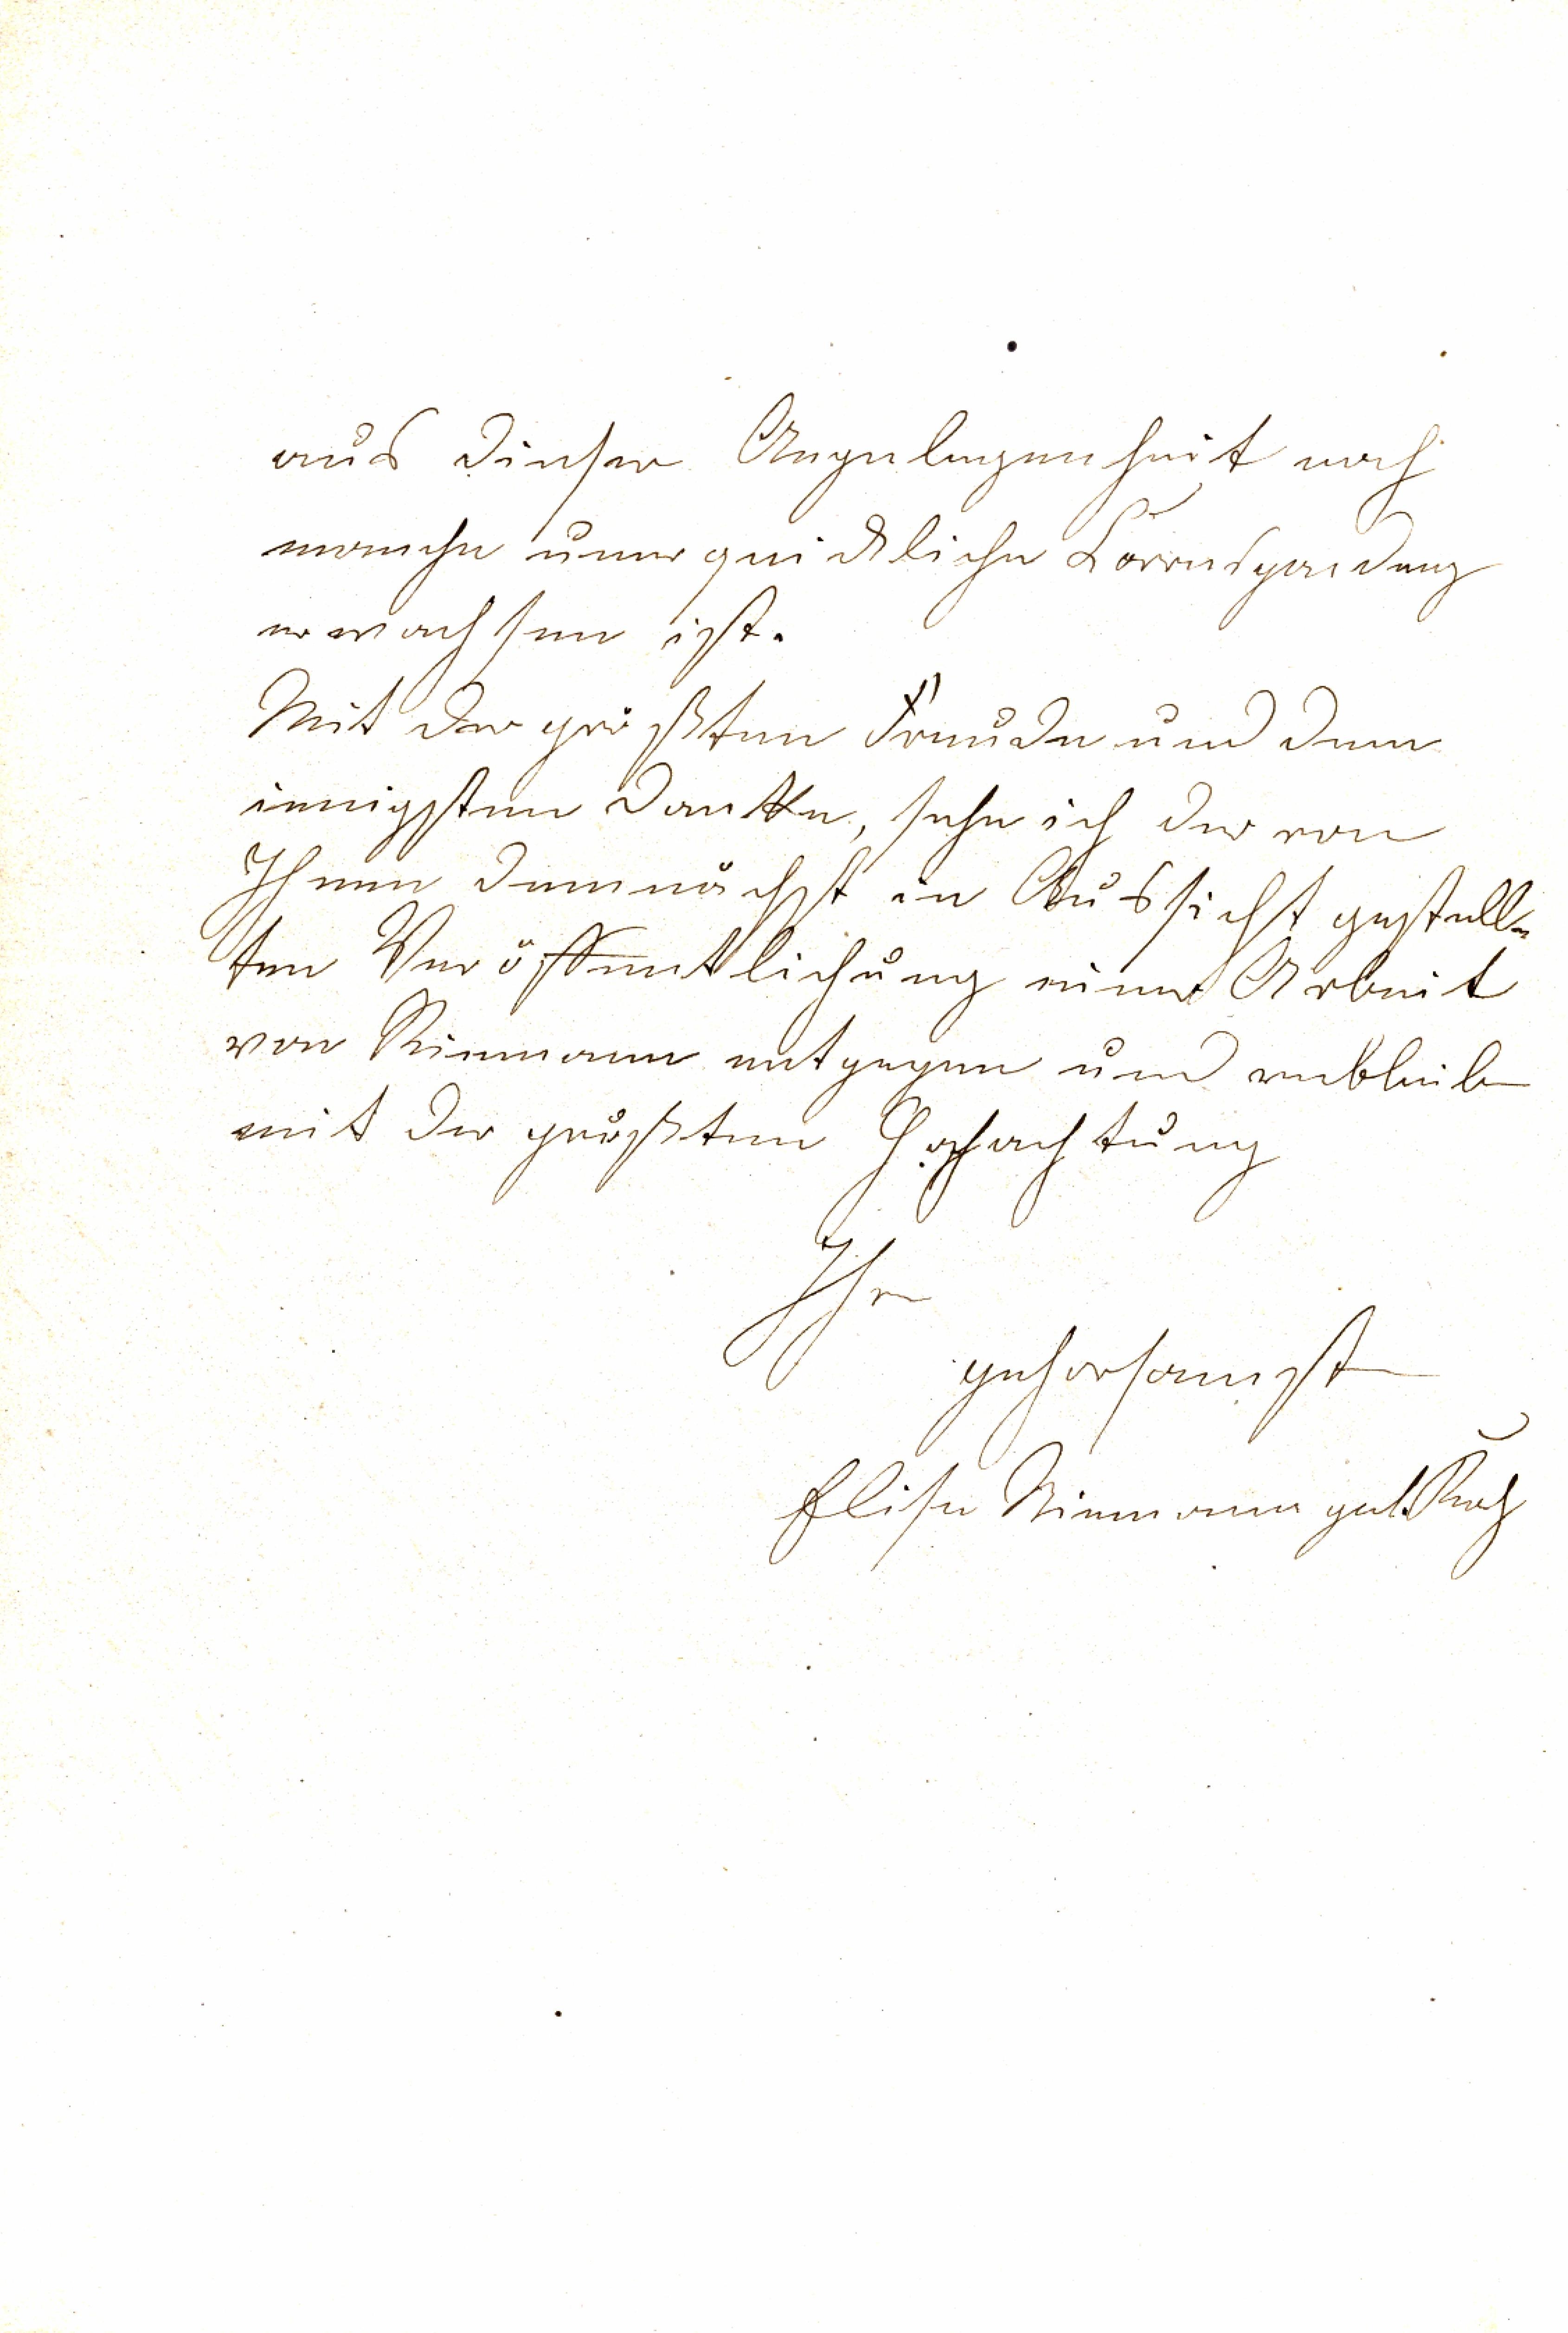 aus dieser Angelegenheit noch
manche unerquickliche Correspondenz
erwachsen ist.
Mit der größten Freude und dem
innigsten Danke, sehe ich der von
Ihnen demnächst in Aussicht gestell-
ten Veröffentlichung einer Arbeit
von Riemann entgegen und verbleibe
mit der größten Hochachtung
Ihre
gehorsamste
Elise Riemann geb. Koch